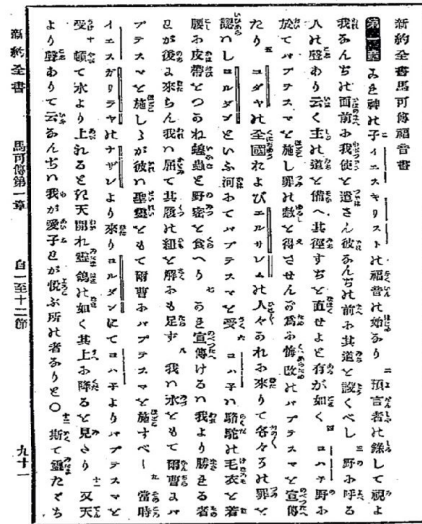 新約全書馬可傳福音書
これ神の子イエスキリストの福音の始なり 二 預言者の録して視よ
我なんぢの面前に我使を遣さん彼なんぢの前に其道を設くべし 三 野に呼る
人の聲あり云く主の道を備へ其徑すぢを直せよと有が如く 四 ヨハ子野に
於てバプテスマを施し罪の赦を得させんが爲に悔改のバプテスマを宣傳
たり 五 ユダヤの全國およびエルサレムの人々かれに來りて各々その罪を
認いしヨルダンといふ河にてバプテスマを受 ヨハ子ハ駱駝の毛衣を着
腰に皮帶をつかね蝗蟲と野蜜を食へり かれ宣傳けるハ我より勝れる者
わが後に來らん我ハ屈て其履の紐を解にも足ず 八 我ハ水をもて爾曹にバ
プテスマを施しゝが彼ハ聖靈をもて爾曹にバプテスマを施すべし 當時
イエスガリラヤのナザレより來りヨルダンにてヨハ子よりバプテスマを
受 頓て水より上れるとき天開れ靈鴿の如く其上に降るを見たり 十一 又天
より聲ありて云なんぢハ我が愛子わが悦ぶ所の者なりと○ 十二 斯て靈たゞち
新約全書 馬可傳第一章 自一至十二節 九十一